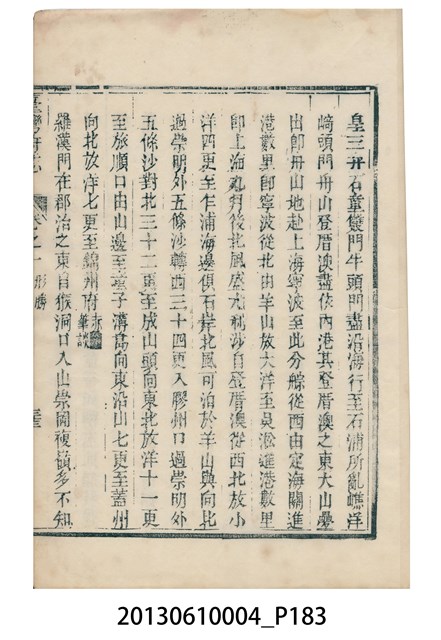 皇三盤石童雙門牛頭門盡沿海行至石浦所亂礁洋
﨑頭門舟山登厝澳盡依內港其登厝澳之東大山疊
出卽舟山地赴上海寧波至此分䑸從西由定海關進
港數里卽寧波從北由羊山放大洋至吳淞進港數里
卽上海九月後北風盛尤利沙自登厝澳從西北放小
洋四更至乍浦海邊俱石岸北風可泊於羊山與向北
過崇明外五條沙轉西三十四更入膠州口過崇明外
五條沙對北三十二更至成山頭向東北放洋十一更
至旅順口由山邊至童子溝島向東沿山七更至蓋州
向北放洋七更至錦州府赤嵌筆談
羅漢門在郡治之東自猴洞口入山崇岡複嶺多不知
臺灣府志 卷之一 形勝
20130610004_P183